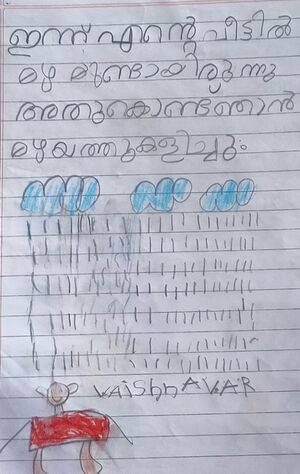 ഇന്ന് എന്റെ വീട്ടിൽ
മഴ മുണ്ടായിരുന്നു
അതുകൊണ്ട്ഞാൻ
മഴയത്തുകളിച്ചും
VAiShnAVAR